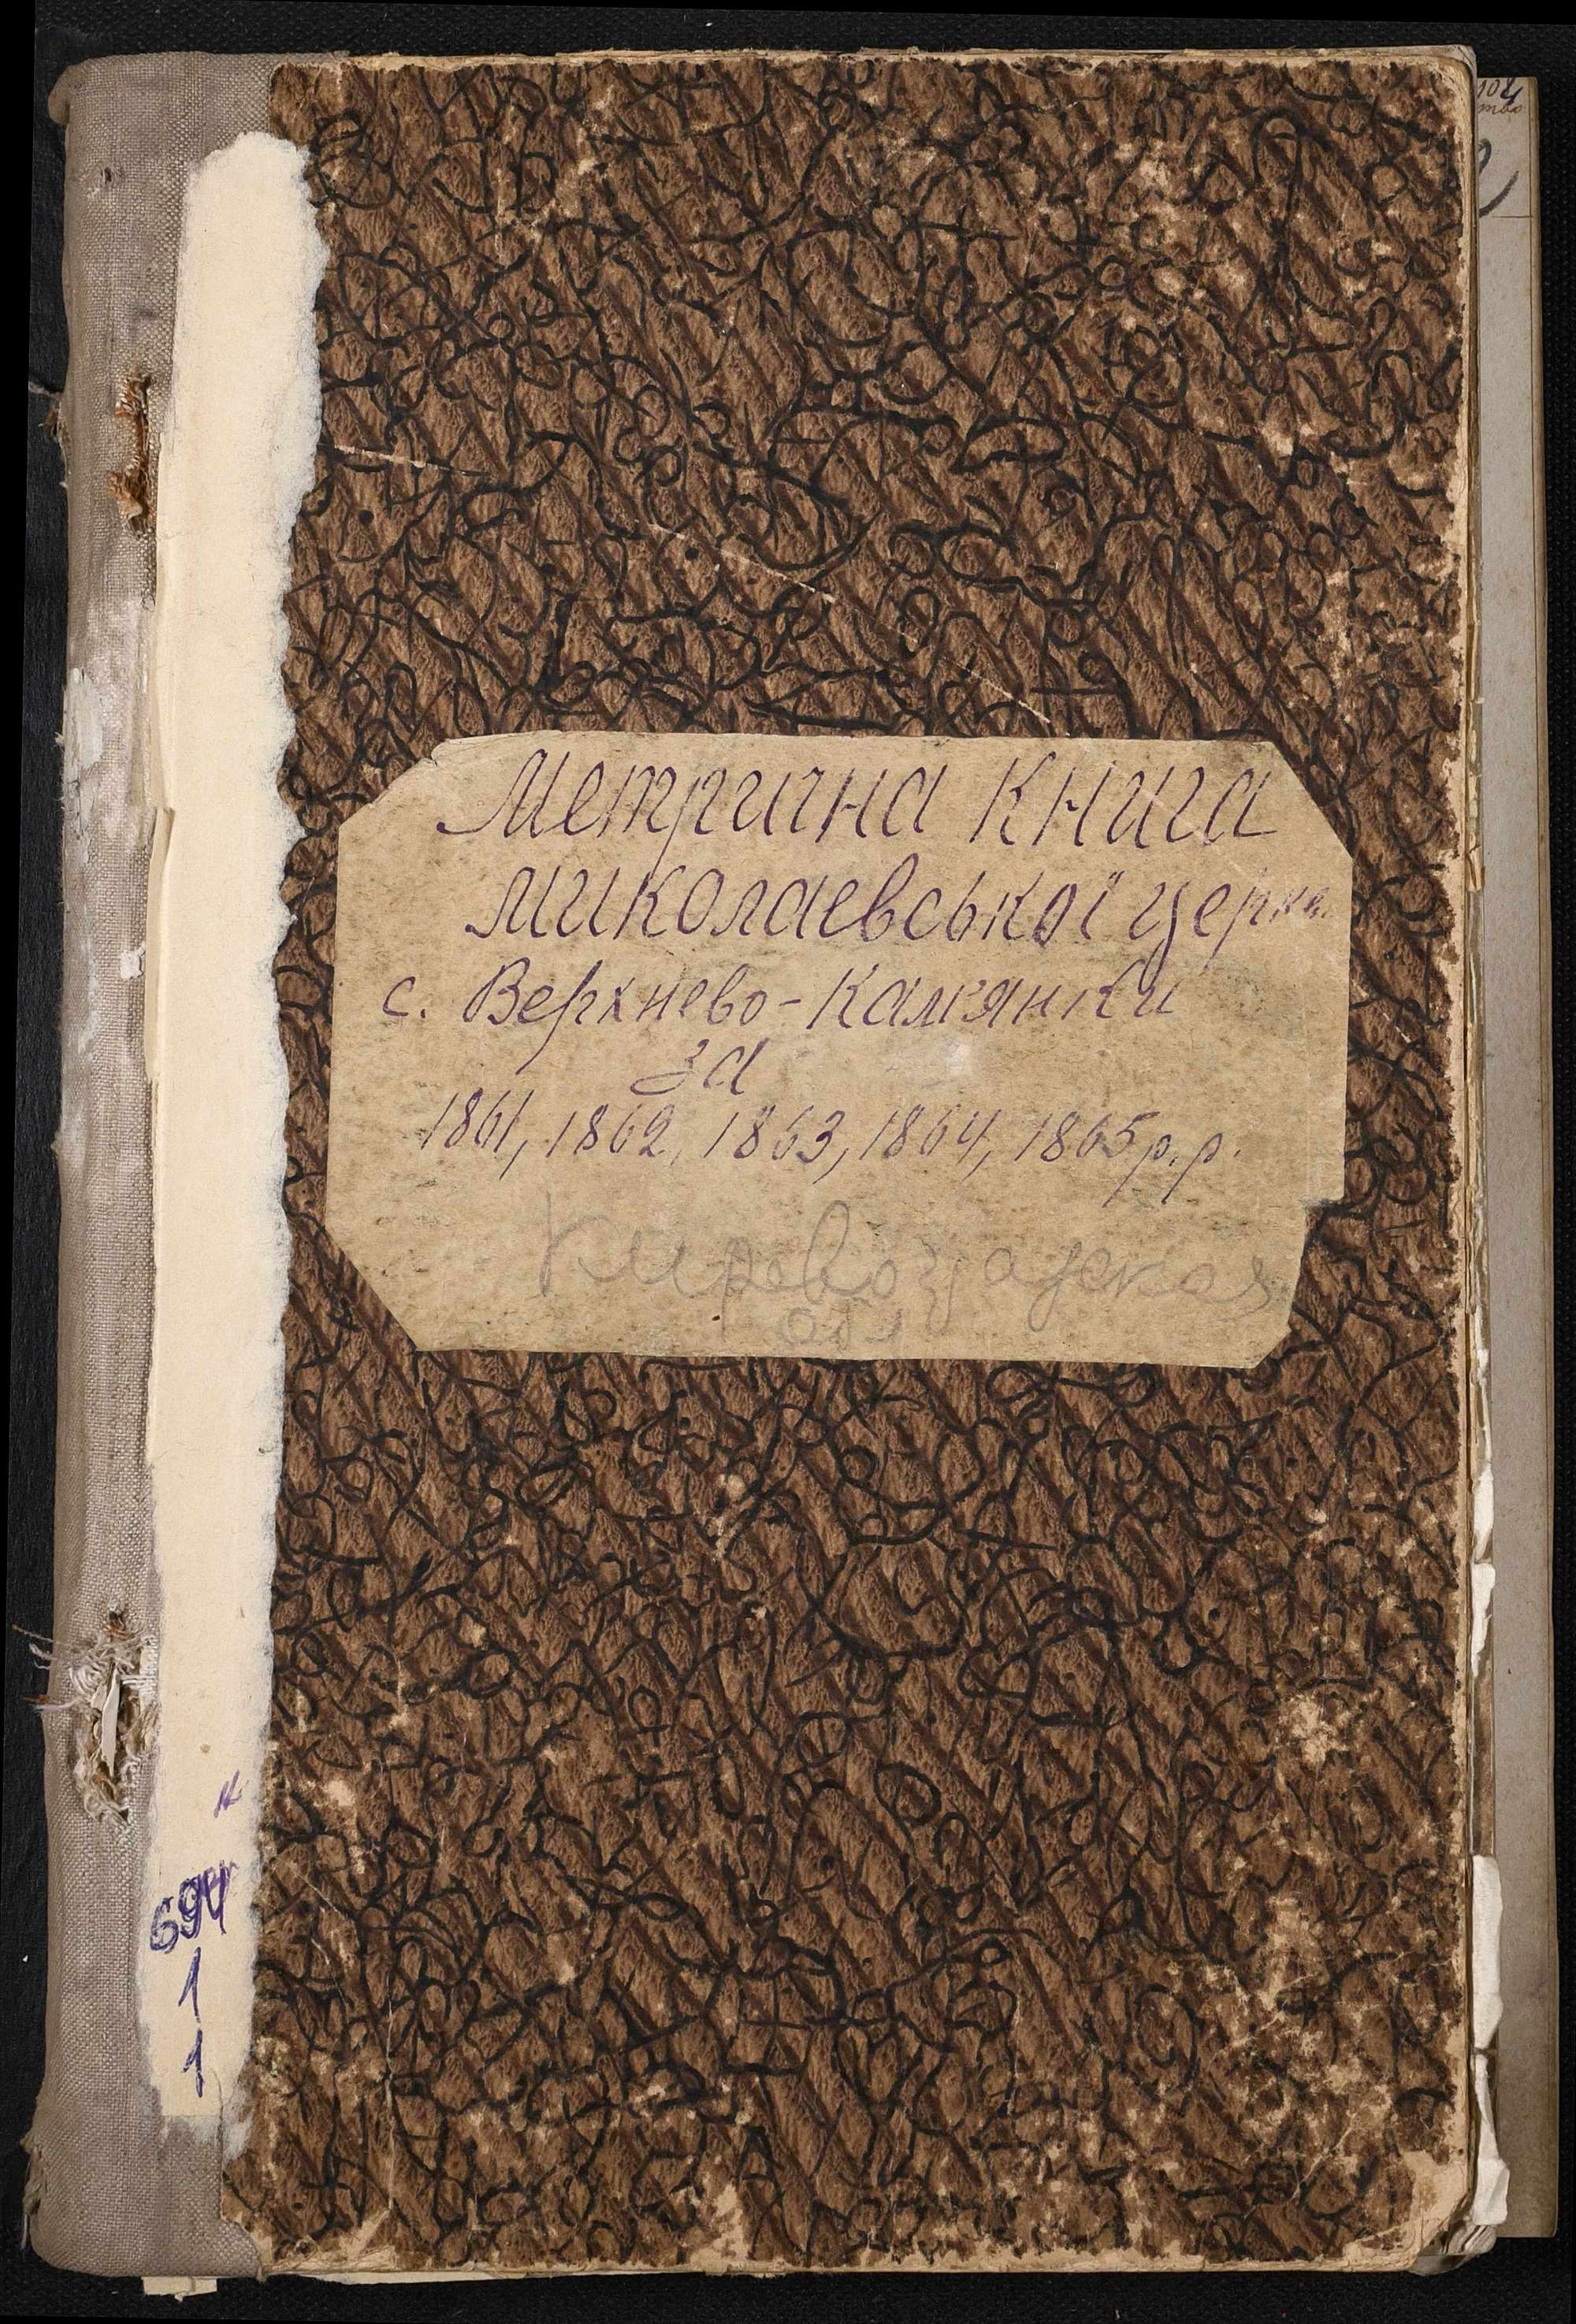 Метрична книга
миколаевської церкви
с. Верхнево-Камянки
за
1861, 1862, 1863, 1864, 1865 р.р.
Кировоградская
обл
694
1
1